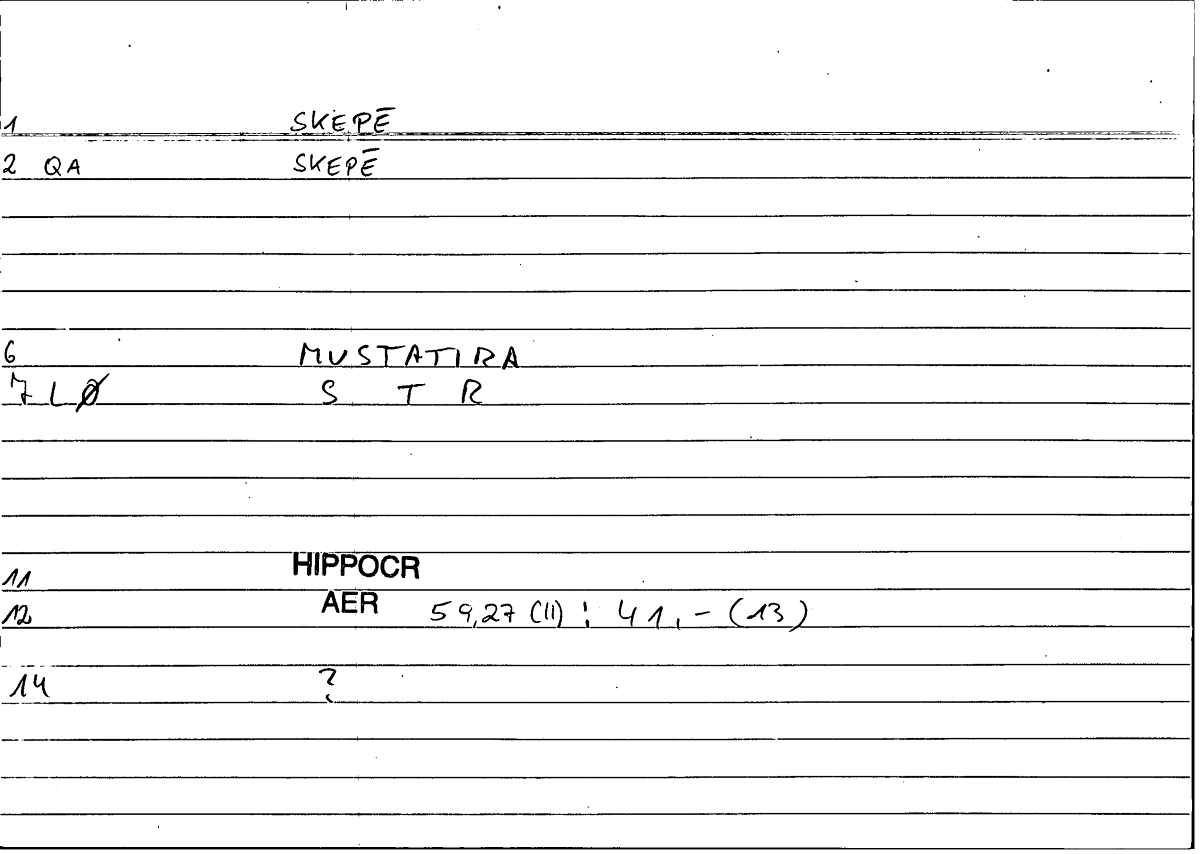 1 SKEPĒ
2 QA SKEPĒ
6 MUSTATIRA
7 LØ S T R
11 HIPPOCR
12 AER 59,27 (11) : 41,- (13)
14 ?